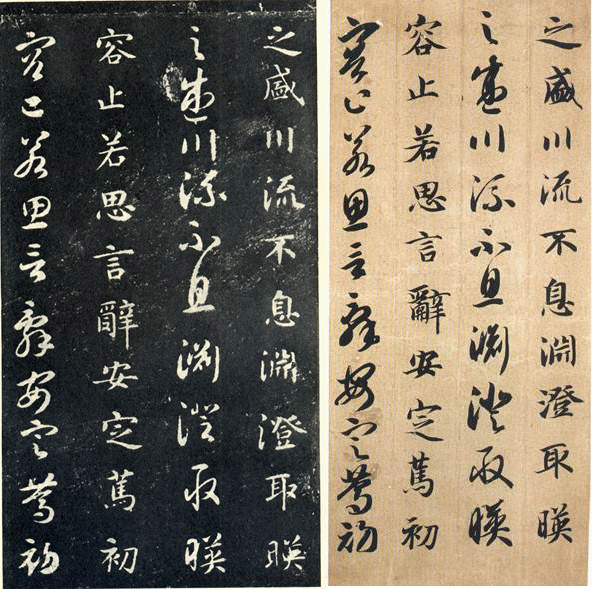 之盛川流不息淵澄取暎
之盛川流不息淵澄取暎
容止若思言辭安定篤初
容止若思言辭安定篤初
之盛川流不息淵澄取暎
之盛川流不息淵澄取暎
容止若思言辭安定篤初
容止若思言辭安定篤初